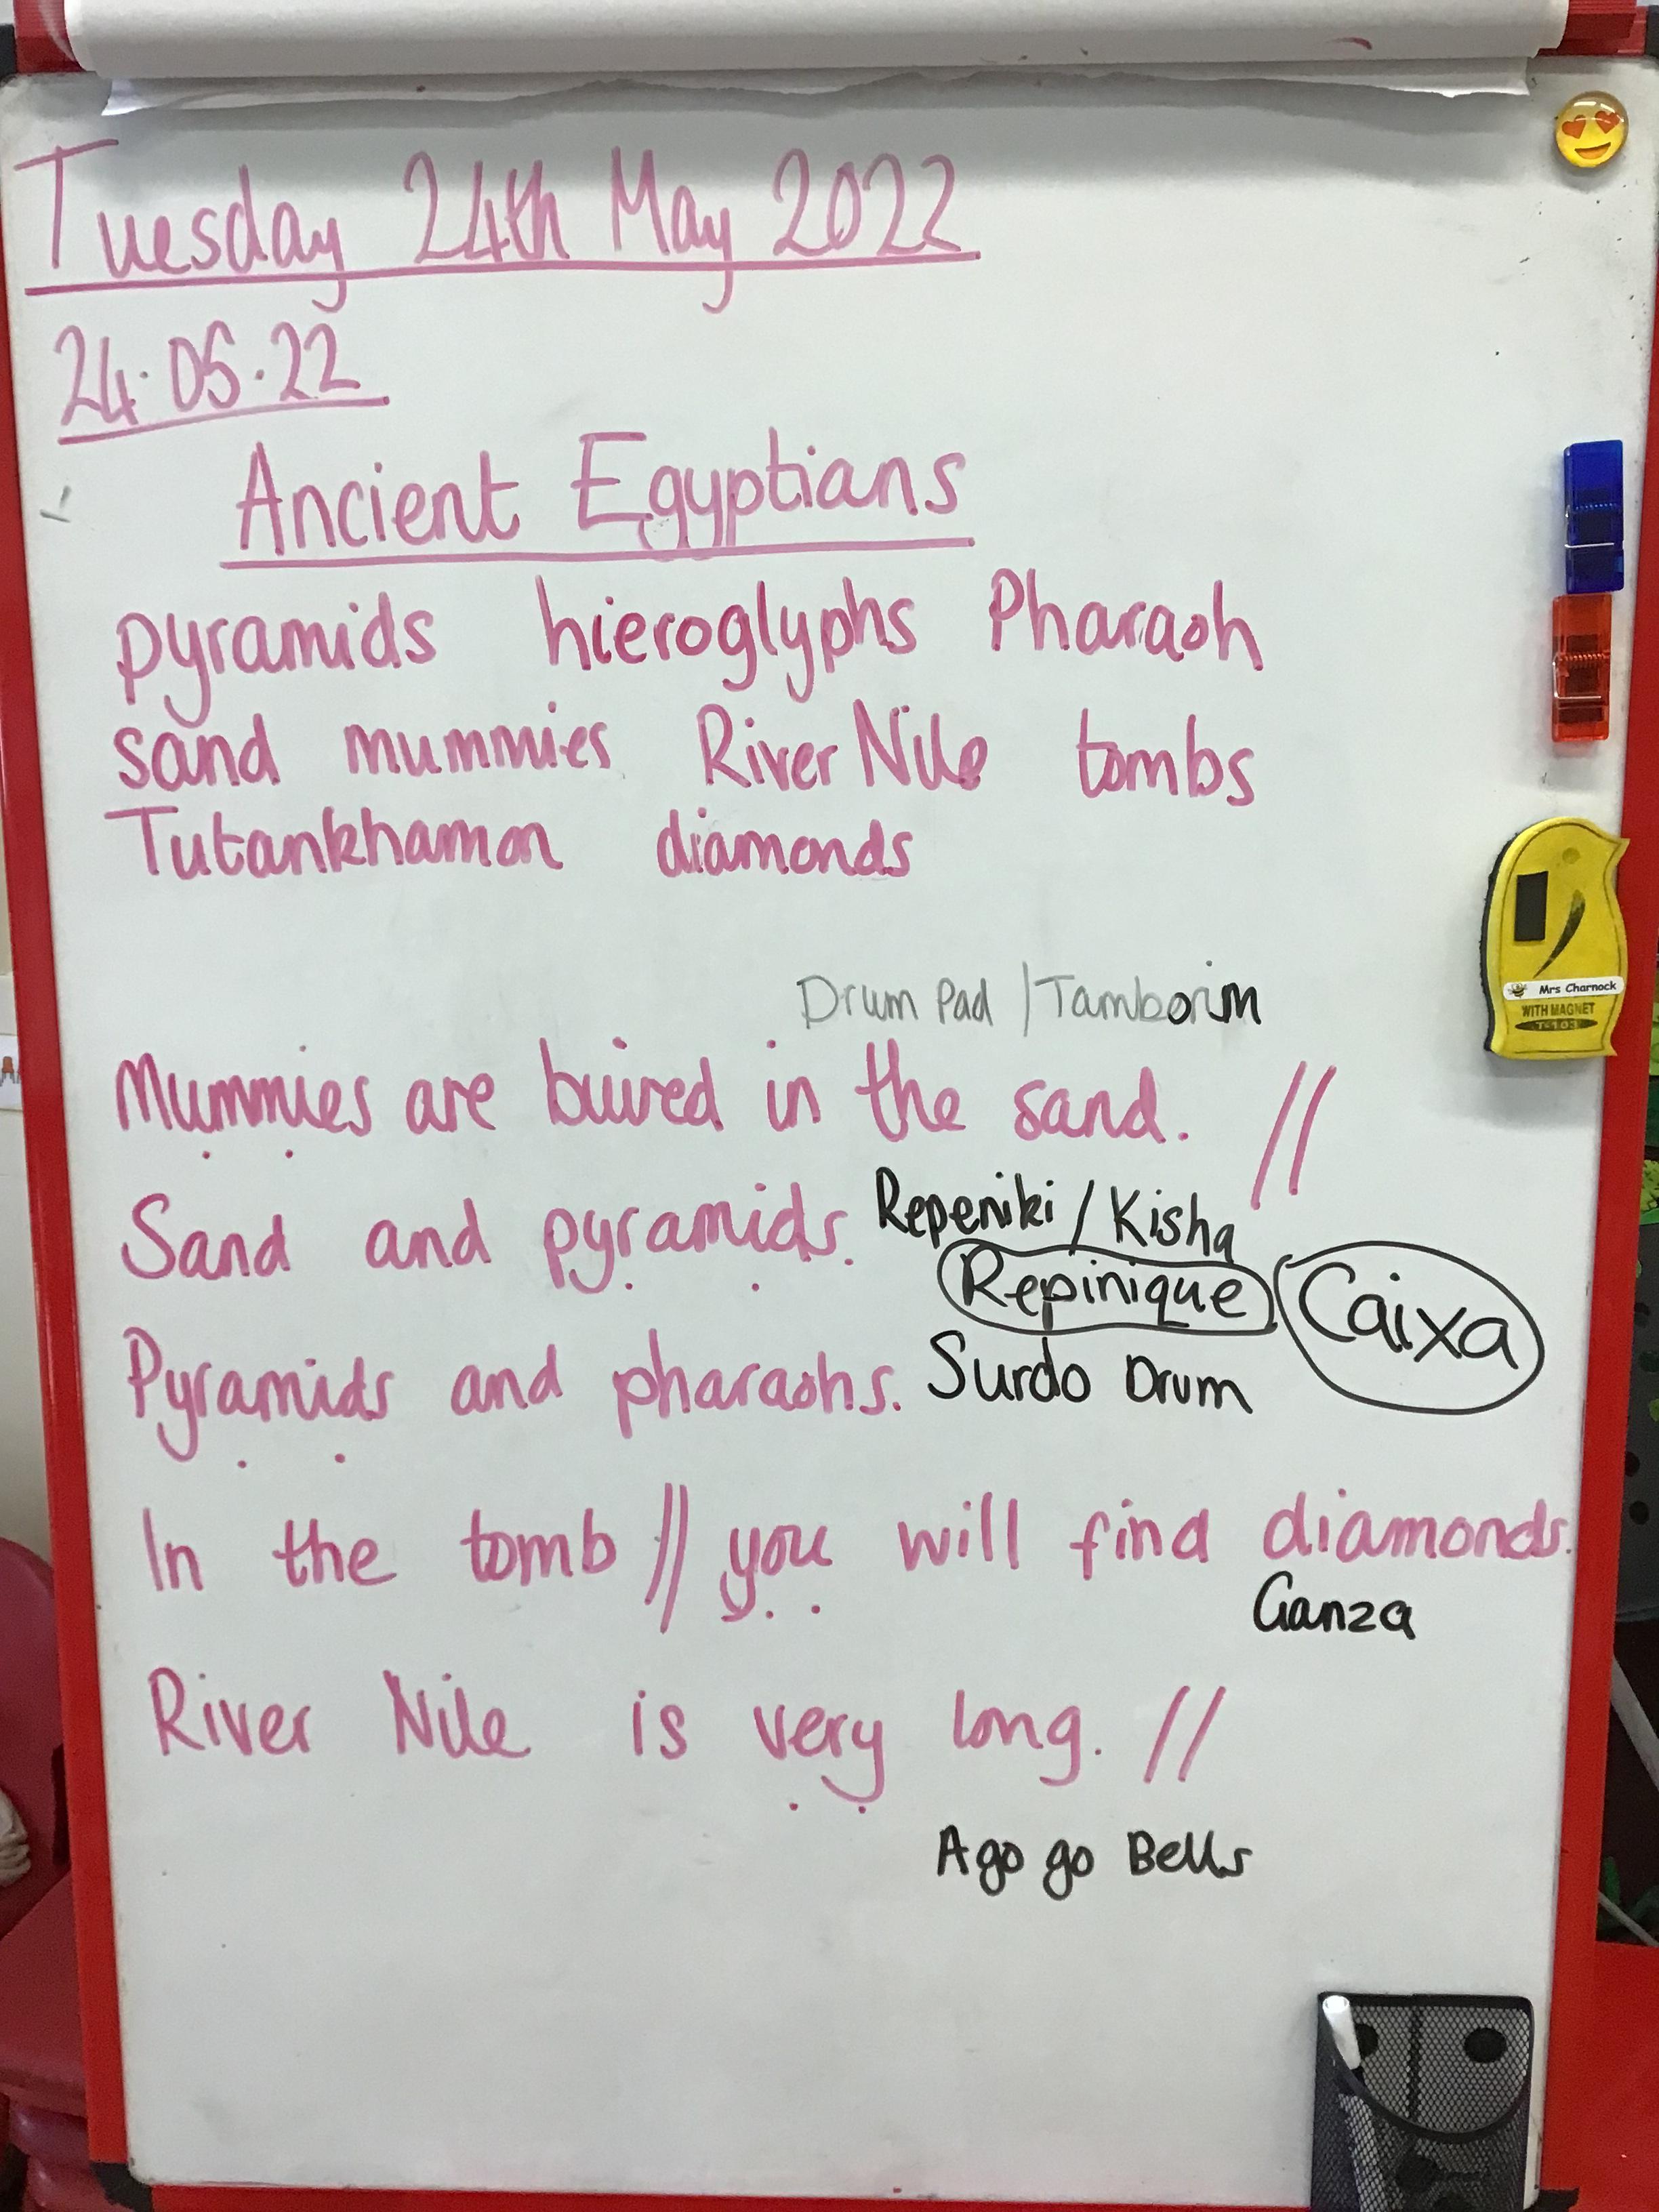 Tuesday 24th May 2022
24.05.22
Ancient Egyptians
pyramids hieroglyphs Pharaoh
sand mummies River Nile tombs
Tutankhamon diamonds
Mrs Charnock
WITH MAGNET
T-103
Drum Pad / Tamborim
Mummies are buired in the sand. //
Sand and pyramids. Repeniki / Kisha
Repinique Caixa
Pyramids and pharaohs. Surdo Drum
In the tomb // you will find diamonds.
Ganza
River Nile is very long. //
Ago go Bells